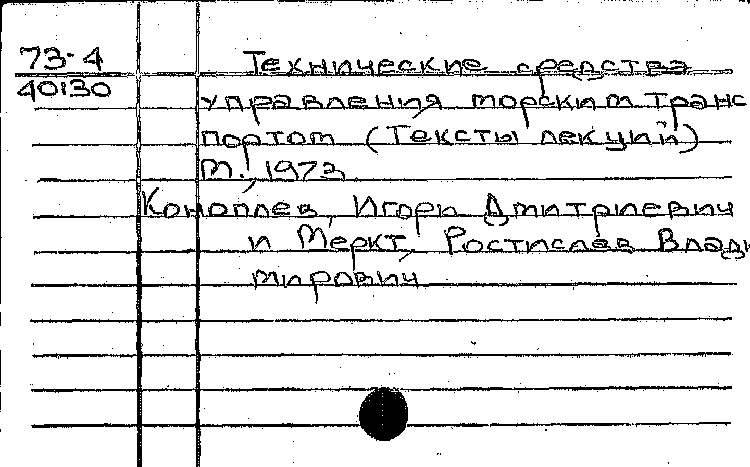 73-4
40130
Технические средства
управления морским транс
портом (Тексты лекций)
М., 1972
Коноплев, Игорь Дмитриевич
и Меркт, Ростислав Влади
мирович